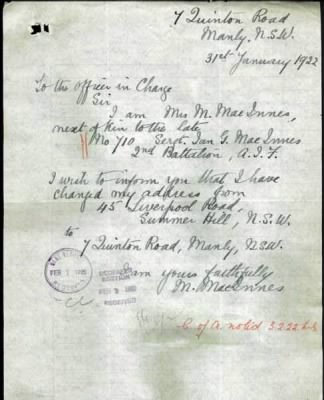 7 Quinton Road
Manly. N.S.W.
31st January 1922
To the officer in Charge
Sir
I am Mrs M. MacInnes,
next of kin to the late
No 710 Sergt. Ian G. MacInnes
2nd Battalion, A.I.F.
I wish to inform you that I have
changed my address from
45 Liverpool Road,
Summer Hill, N.S.W.
to
7 Quinton Road, Manly, NSW.
I am yours faithfully
M. MacInnes
FEB 
RECEIVED
C of A. noted 3.2.22